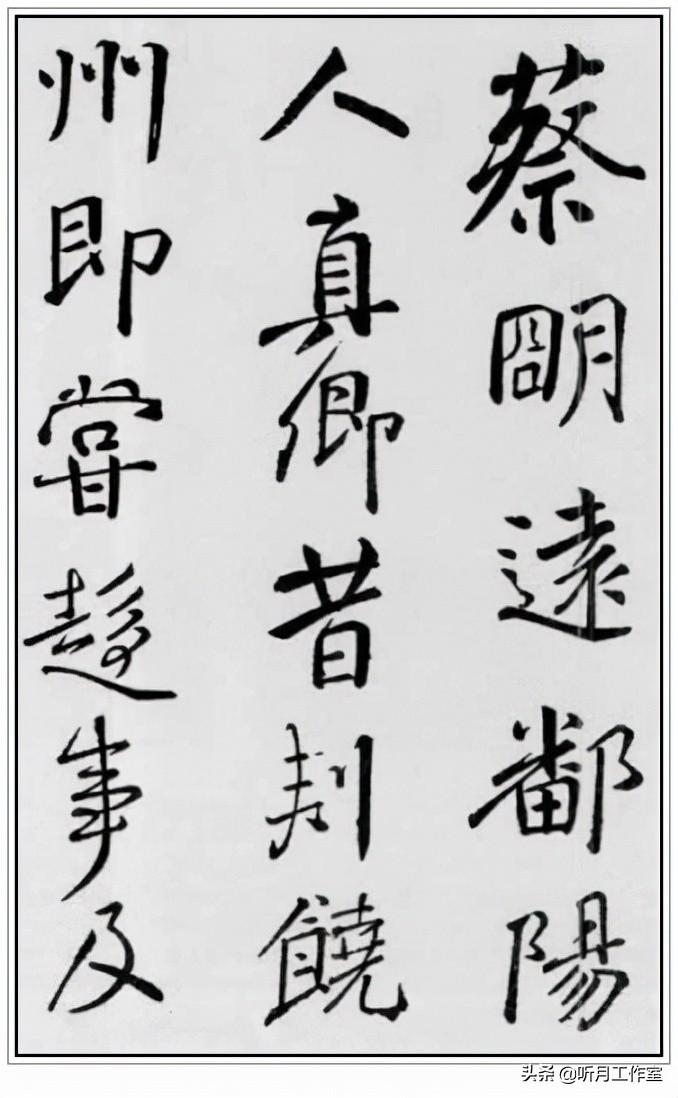 蔡明遠鄱陽
人真卿昔刺饒
州即嘗趍事及
头条 @听月工作室